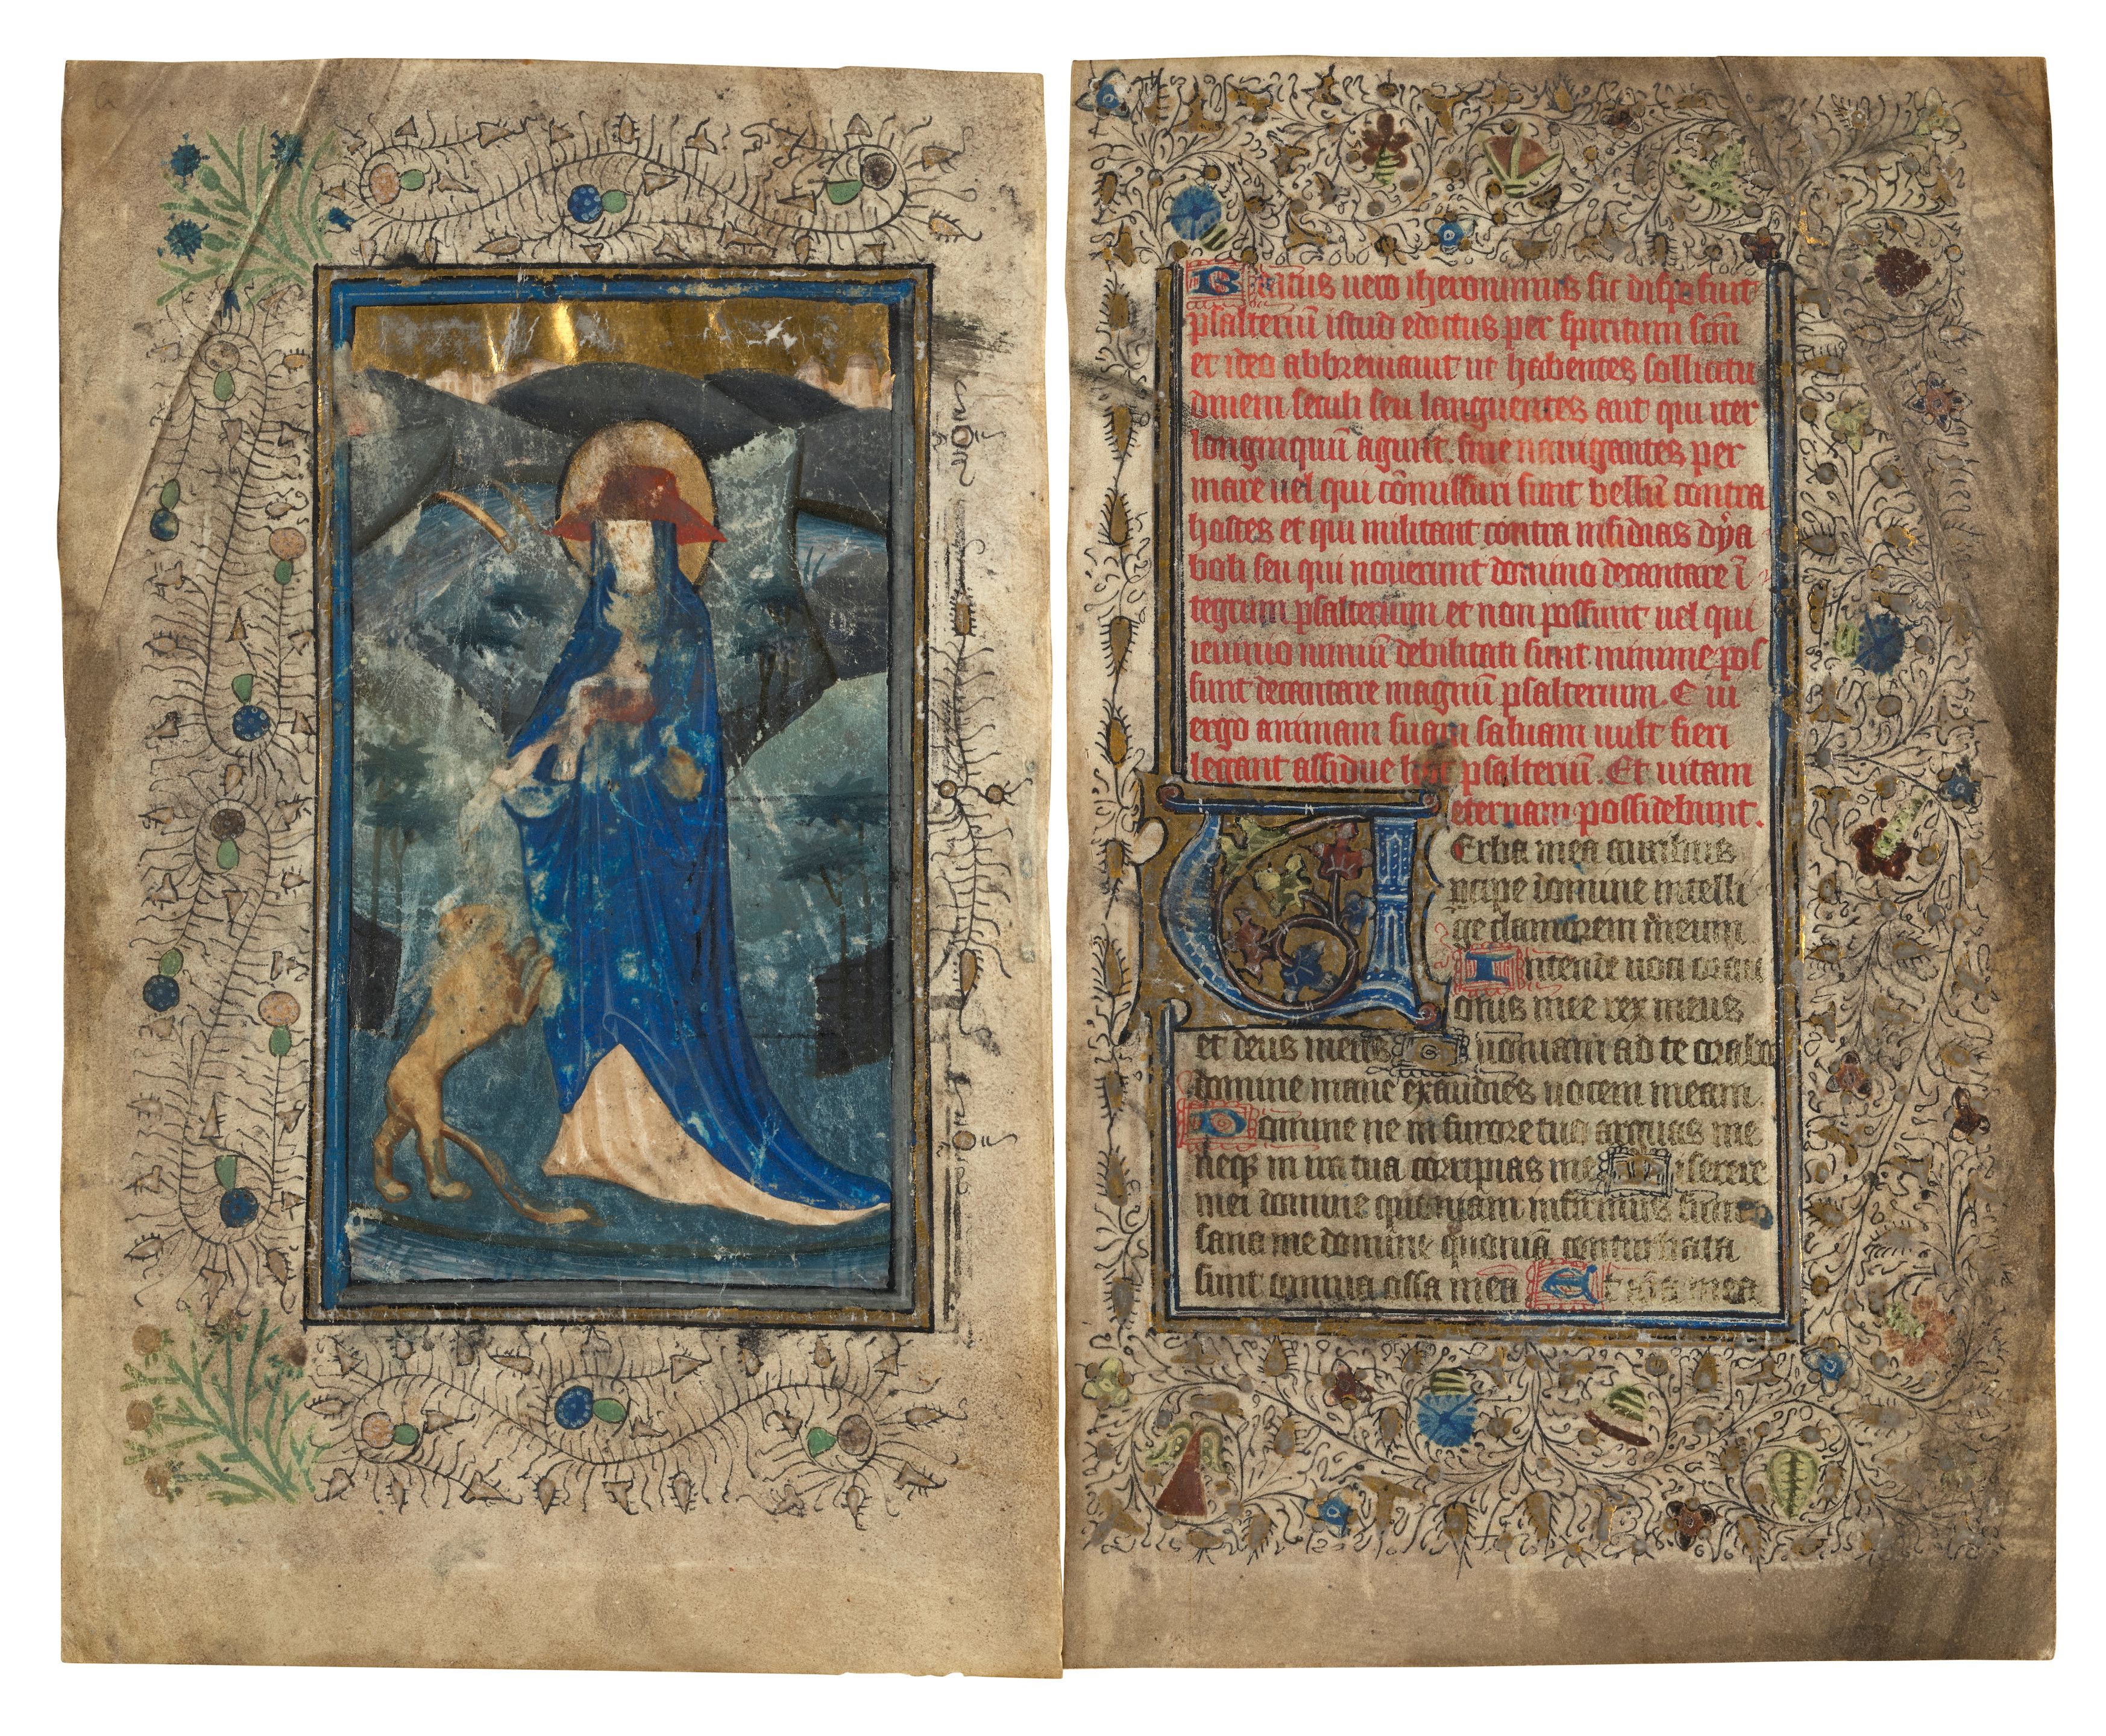 Beatus uero iheronimus sic disposuit
psalteriū istud edoctus per spiritum scm̄
et ideo abbreuiauit ut habentes sollicitu
dinem seculi seu languentes aut qui iter
longinquū agunt. siue nauigantes per
mare uel qui cōmissuri sunt bellū contra
hostes et qui militant contra insidias dya
boli seu qui nouerunt domino decantare ī
tegrum psalterium et non possunt uel qui
ieiunio nimiū debilitati sunt minime pos
sunt decantare magnū psalterium. Qui
ergo animam suam saluam uult fieri
legant assidue hoc psalteriū. Et uitam
eternam possidebunt.
UErba mea auribus
percipe domine intelli
ge clamorem meum
Intende uoci orati
onis mee rex meus
et deus meus Quoniam ad te orabo
domine mane exaudies uocem meam.
Domine ne in furore tuo arguas me
neqȝ in ira tua corripias me Miserere
mei domine quoniam infirmus sum
sana me domine quoniā conturbata
sunt omnia ossa mea Et aīa mea